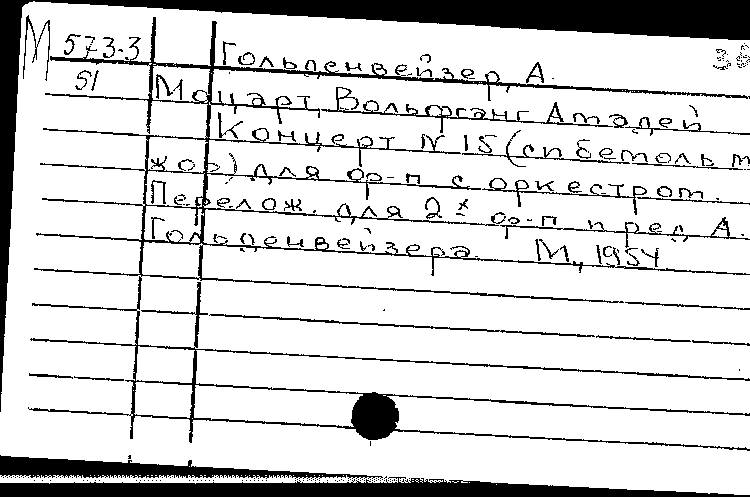 М 573-3 Гольденвейзер, А. 38
51 Моцарт, Вольфганг Амадей
Концерт № 15 (си бемоль м
жор) для ф-п с оркестром.
Перелож. для 2х ф-п и ред. А.
Гольденвейзера. М., 1954